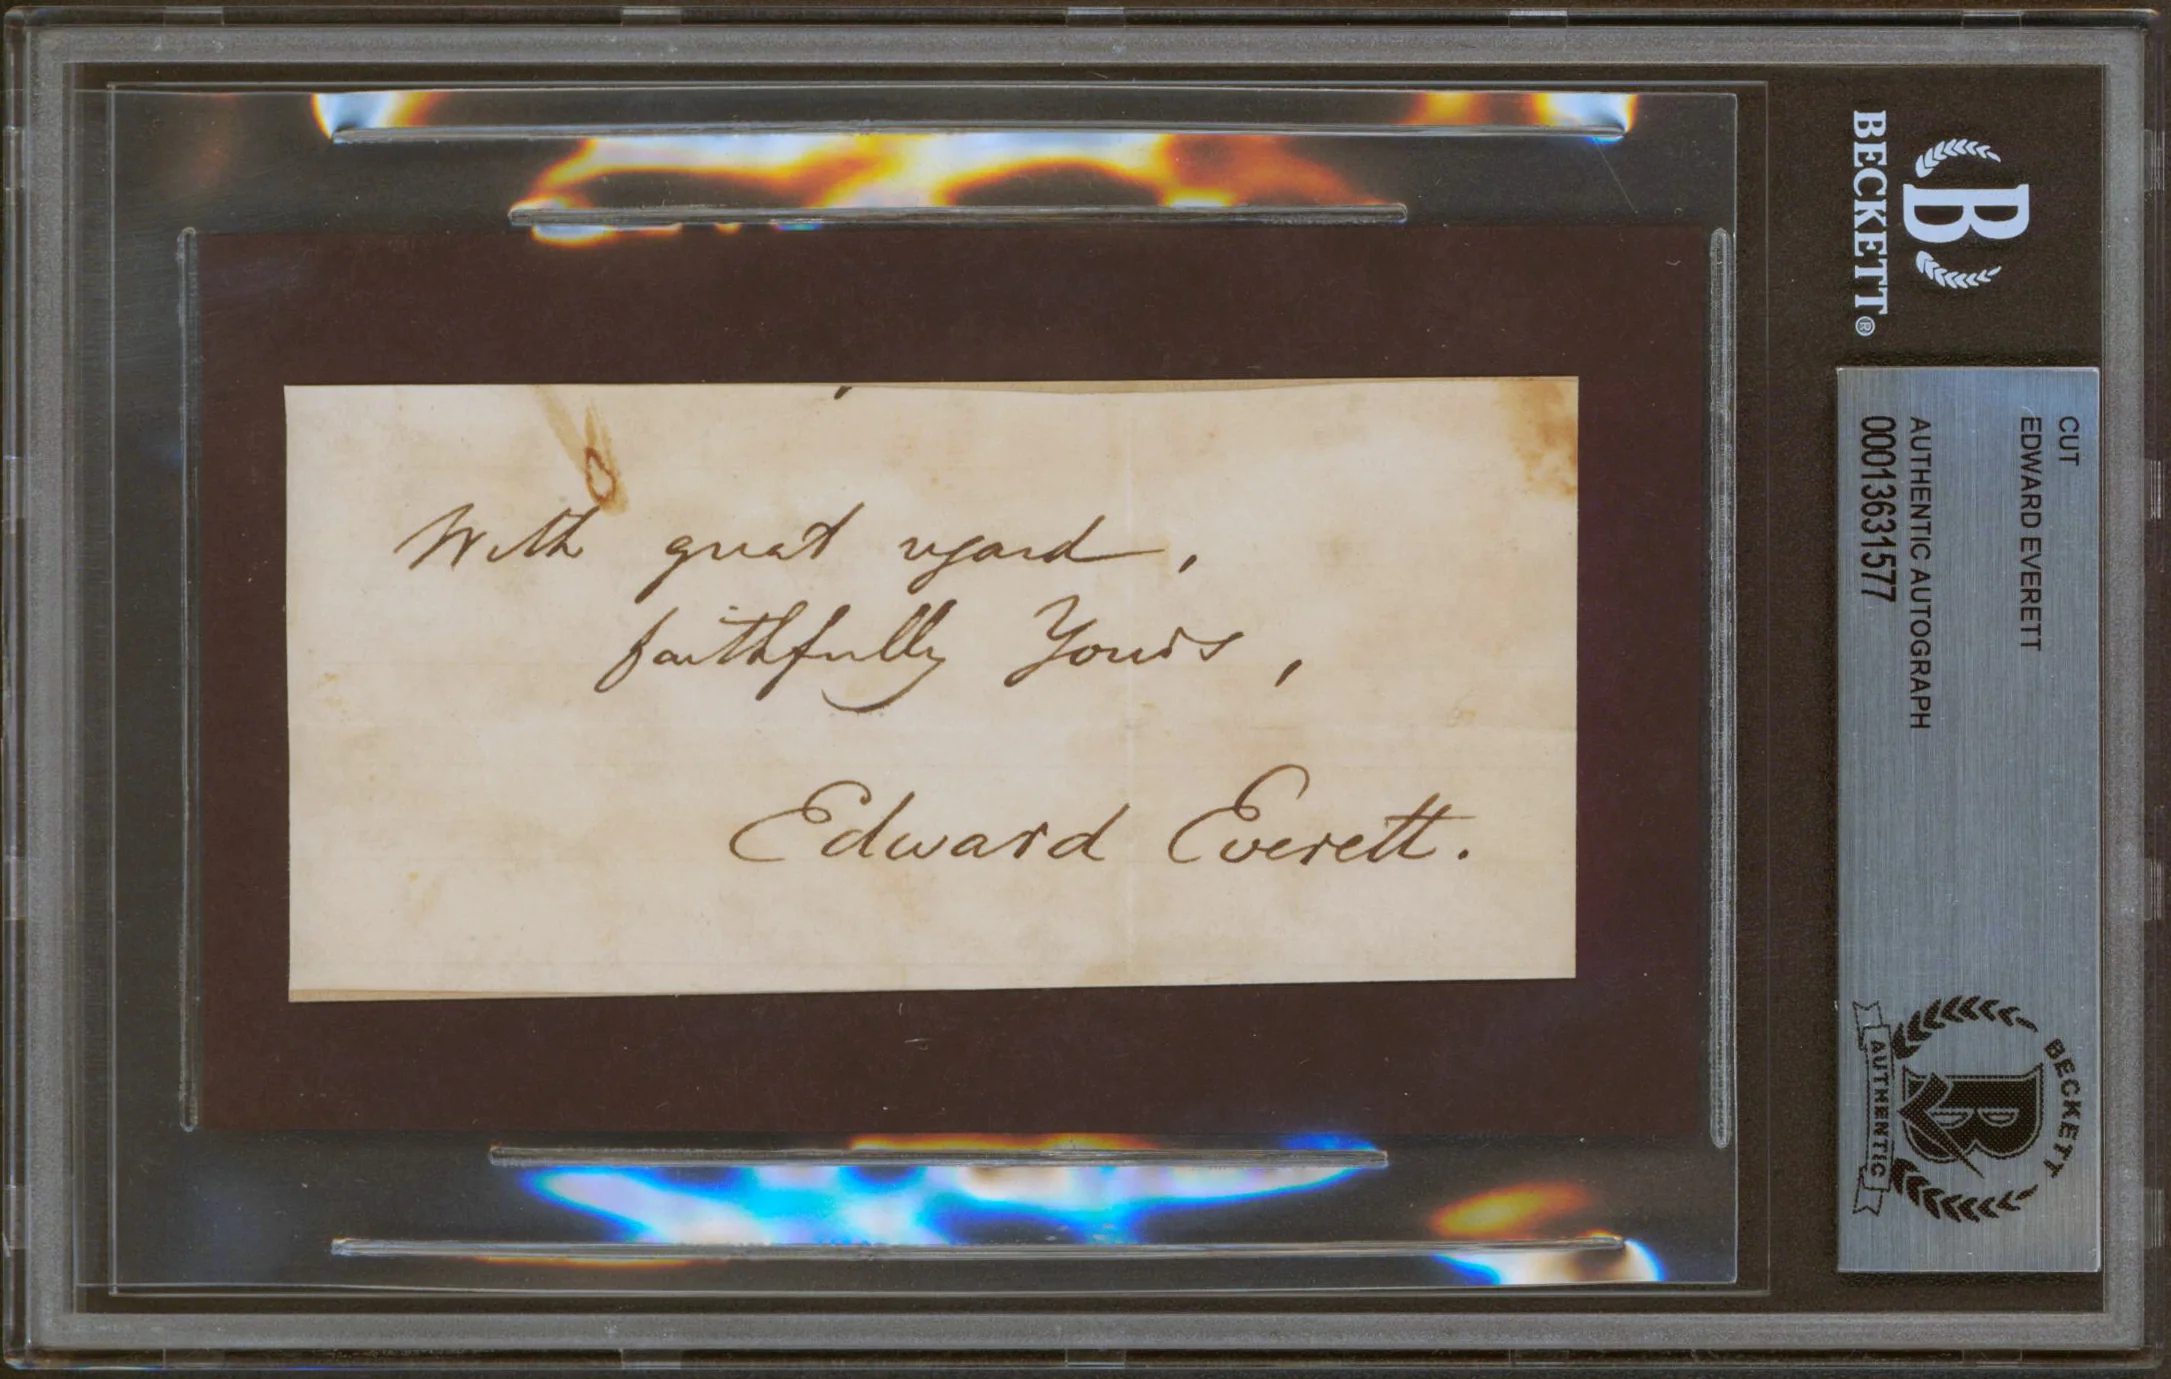 With great regard,
faithfully Yours,
Edward Everett.
BECKETT®
B
CUT
EDWARD EVERETT
AUTHENTIC AUTOGRAPH
00013631577
BECKETT
B
AUTHENTIC